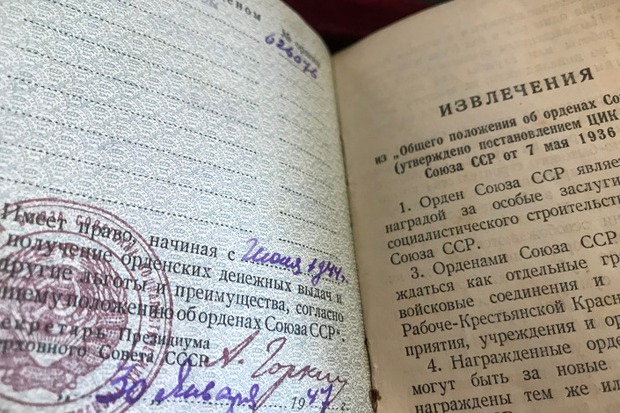 № ордена
626076
Имеет право, начиная с Июня 1944 г.
получение орденских денежных выдач и
другие льготы и преимущества, согласно
положению об орденах Союза ССР".
Секретарь Президиума
Верховного Совета СССР А. Горкин
30 Января 1947 г.
ИЗВЛЕЧЕНИЯ
из „Общего положения об орденах Сою
(утверждено постановлением ЦИК
Союза ССР от 7 мая 1936
1. Орден Союза ССР являе
наградой за особые заслуги
социалистического строительств
Союза ССР.
3. Орденами Союза ССР
ждаться как отдельные гр
войсковые соединения и
Рабоче-Крестьянской Красн
приятия, учреждения и ор
4. Награжденные орде
могут быть за новые
награждены тем же ил